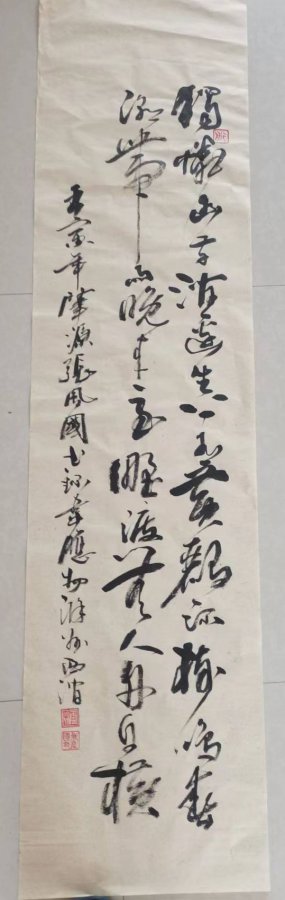 獨憐幽草澗邊生上有黃鸝深樹鳴春
潮帶雨晚來急野渡無人舟自橫
年張風國書錄韋應物滁州西澗